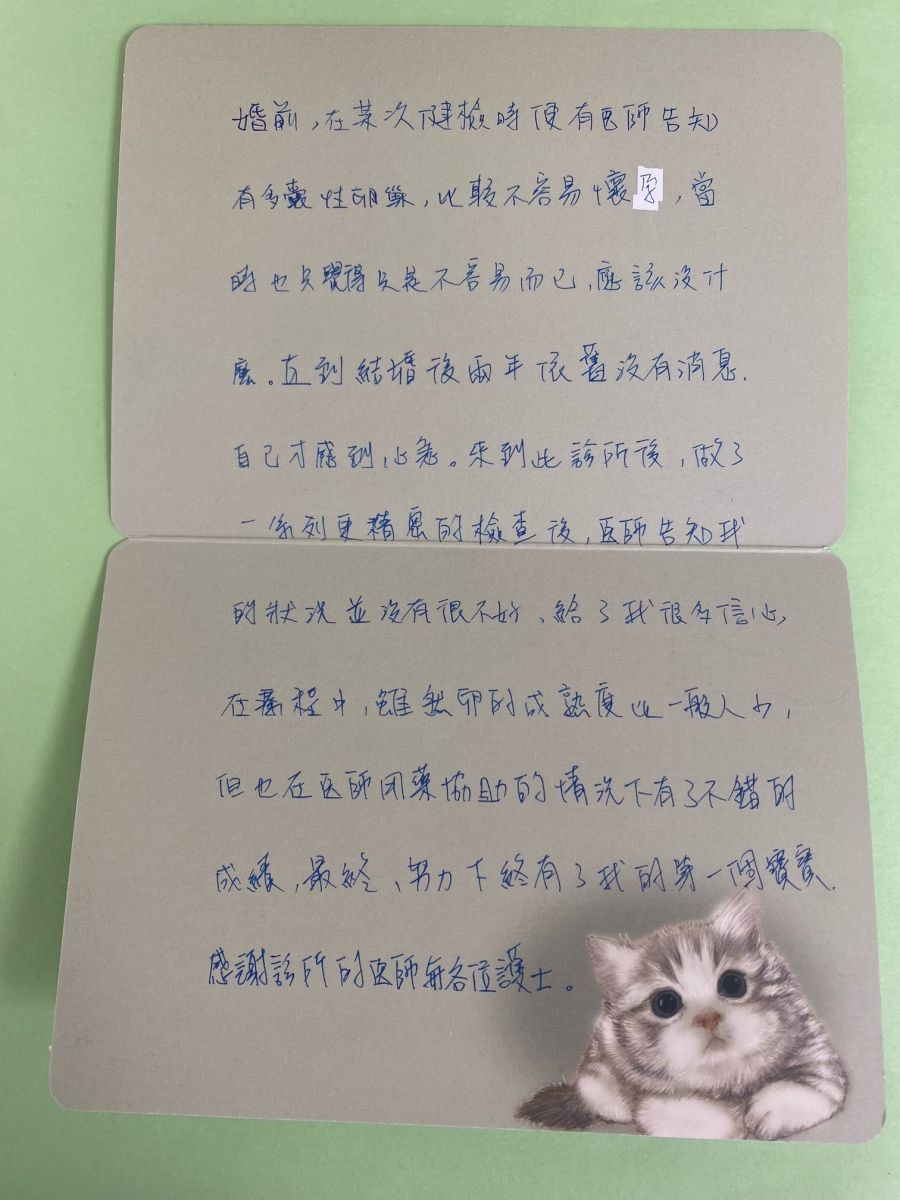 婚前,在某次健檢時便有医師告知
有多囊性卵巢,比較不容易懷孕,當
時也只覺得只是不容易而已,應該沒什
麼。直到結婚後兩年依舊沒有消息.
自己才感到心急。來到此診所後,做了
一系列更精密的檢查後,医師告知我
的狀況並沒有很不好、給了我很多信心,
在療程中,雖然卵的成熟度比一般人少,
但也在医師用藥協助的情況下有了不錯的
成績,最終、努力下終有了我的第一個寶寶.
感謝診所的医師與各位護士。